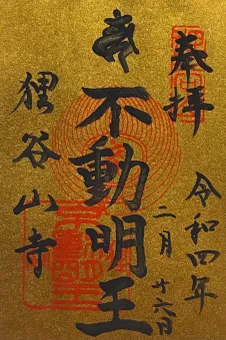 奉拝
令和四年
二月十六日
不動明王
狸谷山寺